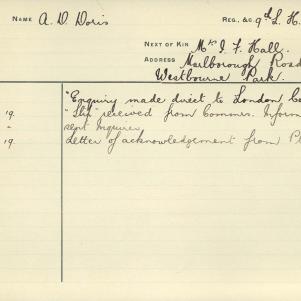 NAME A. D. Doris REG. &C 9th L. H.
NEXT OF KIN Mr I. F. Hall.
ADDRESS Marlborough Road
Westbourne Park.
"Enquiry made direct to London
19. "Slip received from Commrs. Inform
" sent Inquirer
19 Letter of acknowledgement from